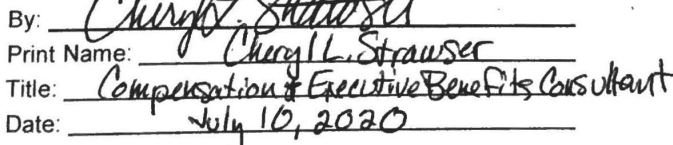 By: Cheryl L. Strauser
Print Name: Cheryl L. Strauser
Title: Compensation & Executive Benefits Consultant
Date: July 10, 2020